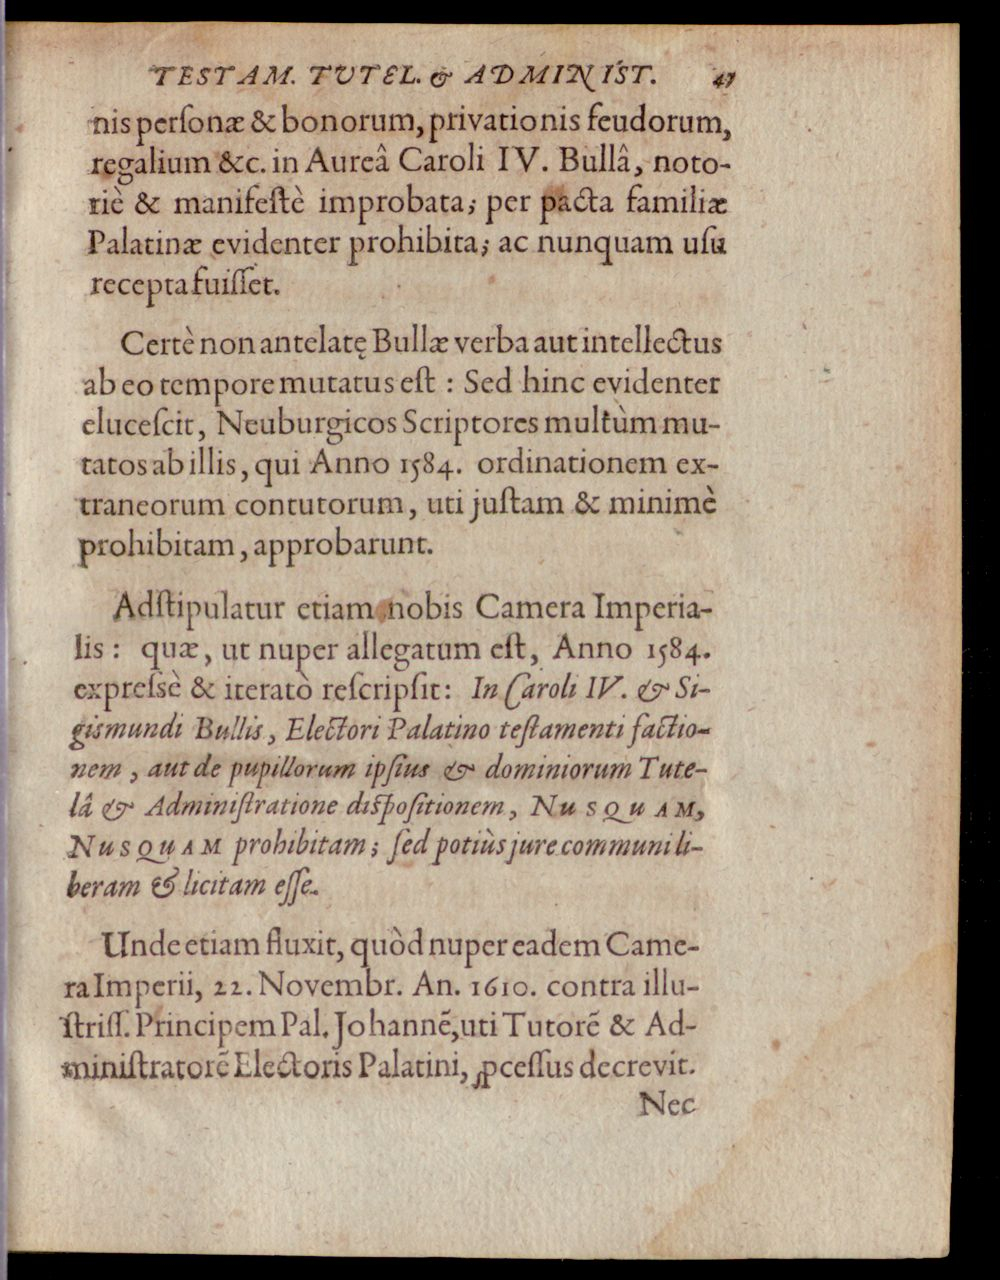 TESTAM. TVTEL. & ADMINIST. 47
nis perſonæ & bonorum, privationis feudorum,
regalium &c. in Aureâ Caroli IV. Bullâ, noto-
riè & manifeſtè improbata; per pacta familiæ
Palatinæ evidenter prohibita; ac nunquam uſu
recepta fuiſſet.
Certè non antelatę Bullæ verba aut intellectus
ab eo tempore mutatus eſt : Sed hinc evidenter
eluceſcit, Neuburgicos Scriptores multùm mu-
tatos ab illis, qui Anno 1584. ordinationem ex-
traneorum contutorum, uti juſtam & minimè
prohibitam, approbarunt.
Adſtipulatur etiam nobis Camera Imperia-
lis : quæ, ut nuper allegatum eſt, Anno 1584.
expreſsè & iteratò reſcripſit: In Caroli IV. & Si-
gismundi Bullis, Electori Palatino teſtamenti factio-
nem, aut de pupillorum ipſius & dominiorum Tute-
lâ & Adminiſtratione diſpoſitionem, NUSQUAM,
NUSQUAM prohibitam; ſed potiùs jure communi li-
beram & licitam eſſe.
Unde etiam fluxit, quòd nuper eadem Came-
ra Imperii, 22. Novembr. An. 1610. contra illu-
ſtriſſ. Principem Pal. Johannẽ, uti Tutorẽ & Ad-
miniſtratorẽ Electoris Palatini, ꝓceſſus decrevit.
Nec